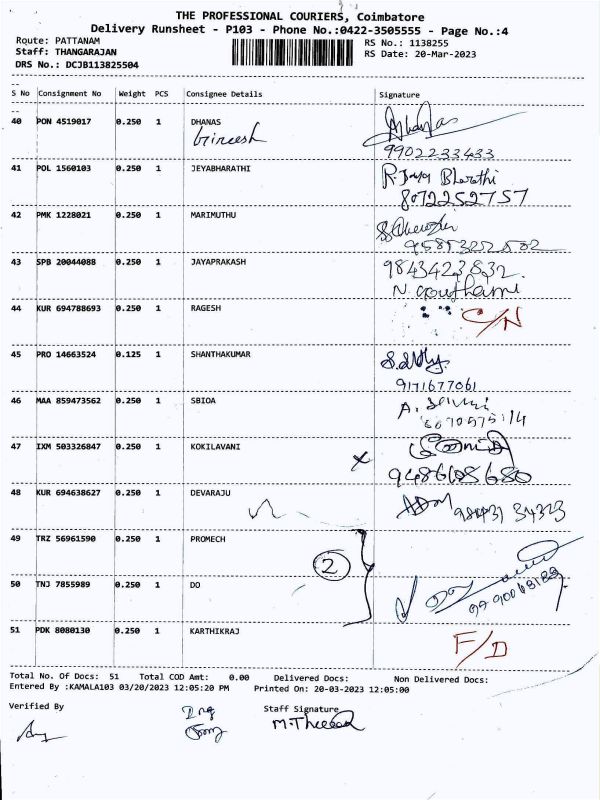 THE PROFESSIONAL COURIERS, Coimbatore
Delivery Runsheet - P103 - Phone No.:0422-3505555 - Page No.:4
Route: PATTANAM RS No.: 1138255
Staff: THANGARAJAN RS Date: 20-Mar-2023
DRS No.: DCJB113825504
S No Consignment No Weight PCS Consignee Details Signature
40 PON 4519017 0.250 1 DHANAS
9902233433
41 POL 1560103 0.250 1 JEYABHARATHI R. Jaya Bharathi
8072252757
42 PMK 1228021 0.250 1 MARIMUTHU
43 SPB 20044088 0.250 1 JAYAPRAKASH 9843423832.
N. Gouthami
44 KUR 694788693 0.250 1 RAGESH C/N
45 PRO 14663524 0.125 1 SHANTHAKUMAR
9171677061
46 MAA 859473562 0.250 1 SBIOA
47 IXM 503326847 0.250 1 KOKILAVANI
x 9486108680
48 KUR 694638627 0.250 1 DEVARAJU
49 TRZ 56961590 0.250 1 PROMECH
2
50 TNJ 7855989 0.250 1 DO
51 PDK 8080130 0.250 1 KARTHIKRAJ F/D
Total No. Of Docs: 51 Total COD Amt: 0.00 Delivered Docs: Non Delivered Docs:
Entered By :KAMALA103 03/20/2023 12:05:20 PM Printed On: 20-03-2023 12:05:00
Verified By Staff Signature